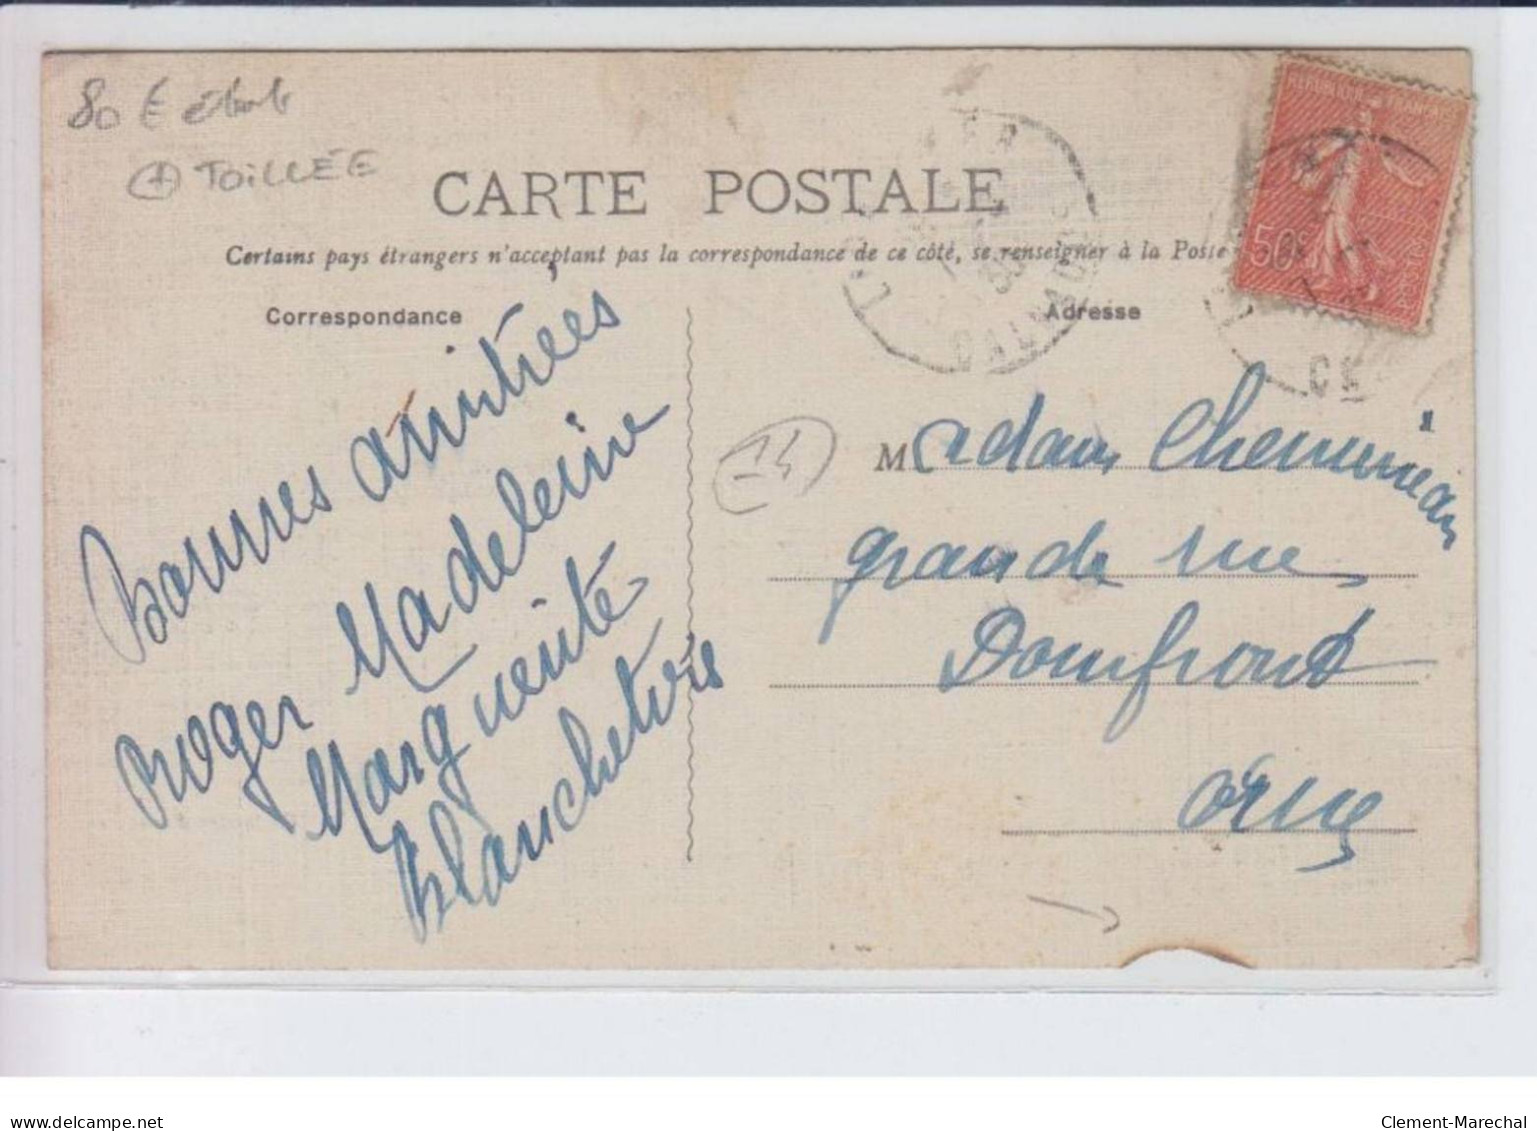 80 €
+ TOILLÉE
CARTE POSTALE
Certains pays étrangers n'acceptent pas la correspondance de ce côté, se renseigner à la Poste
Correspondance
Adresse
50
CALVADOS
Bonnes amitiées
Roger Madeleine
Marguerite
Blanchetière
14
Madame Chemineau
grande rue
Domfront
Orne
delcampe.net
Clement-Marechal